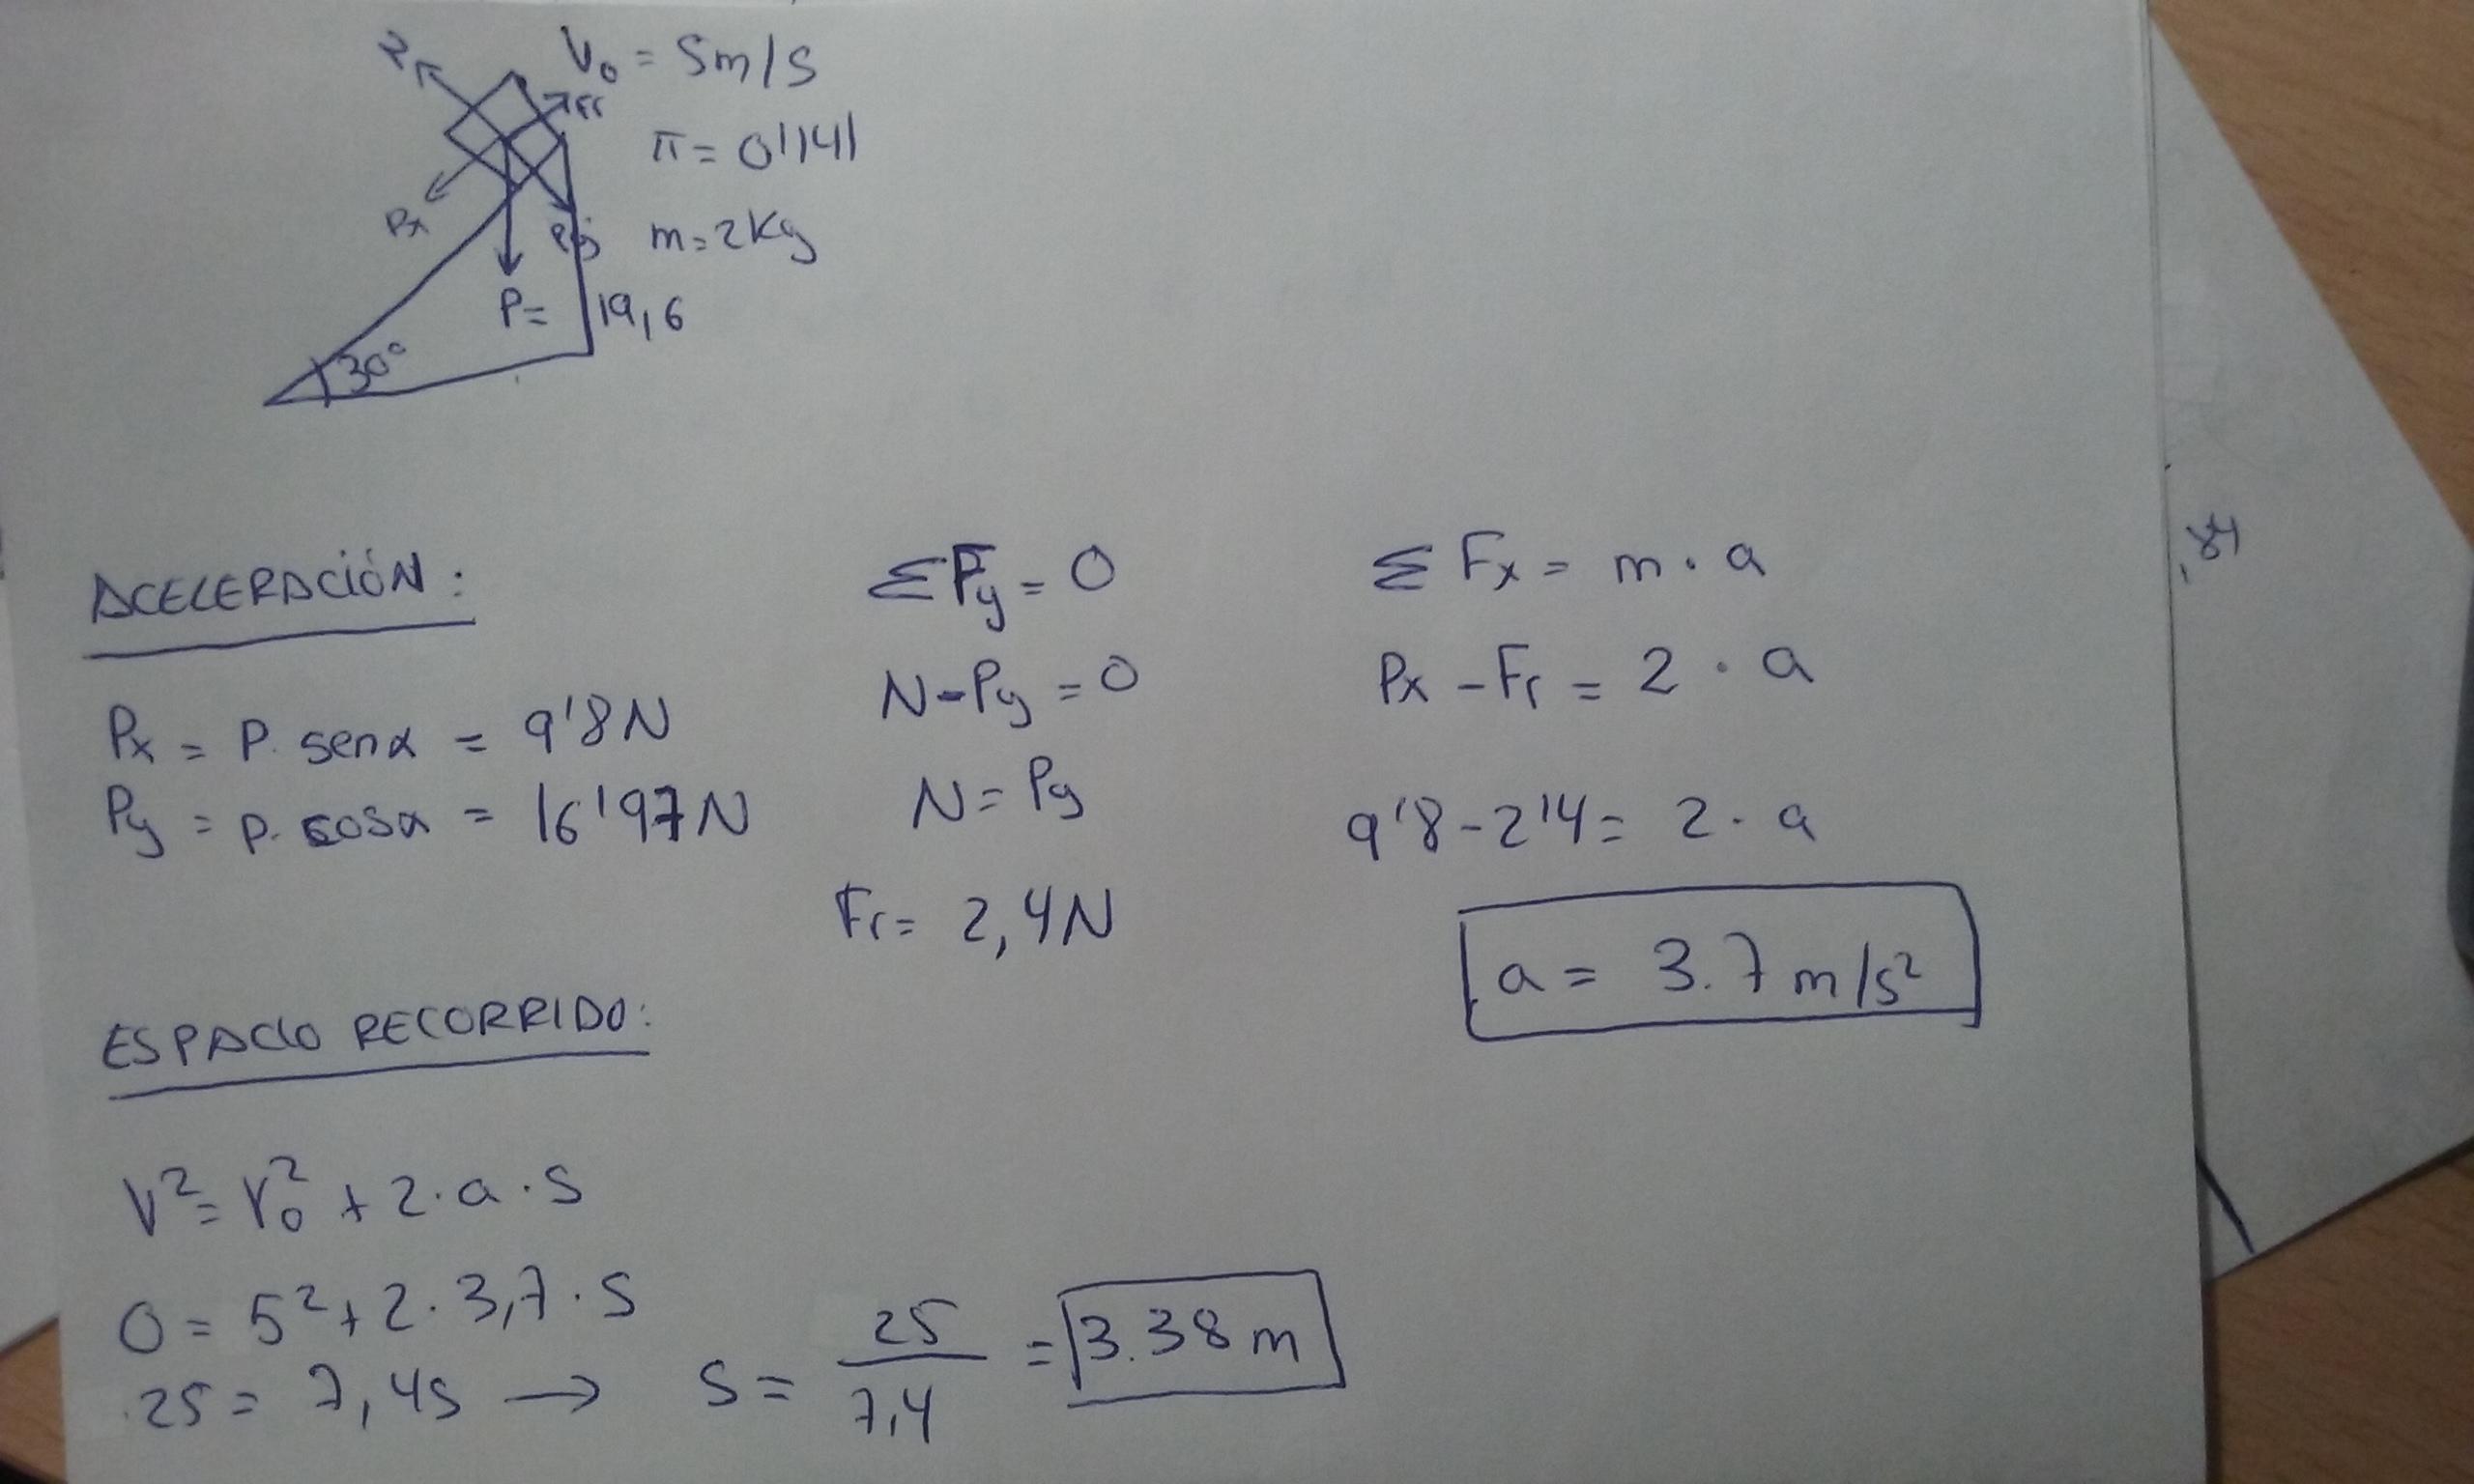 N
V₀ = 5m/s
Fr
π = 0'141
Px
Py
m=2Kg
P= 19,6
30°
ACELERACIÓN:
Px = P. senα = 9'8N
Py = P. cosα = 16'97N
ΣFy = 0
N-Py = 0
N = Py
Fr= 2,4N
ΣFx = m · a
Px - Fr = 2 · a
9'8-2'4= 2 · a
a = 3.7 m/s²
ESPACIO RECORRIDO:
V² = V₀² + 2·a·s
0 = 5² + 2·3,7·s
25 = 7,4s → s = 25/7,4 = 3.38 m